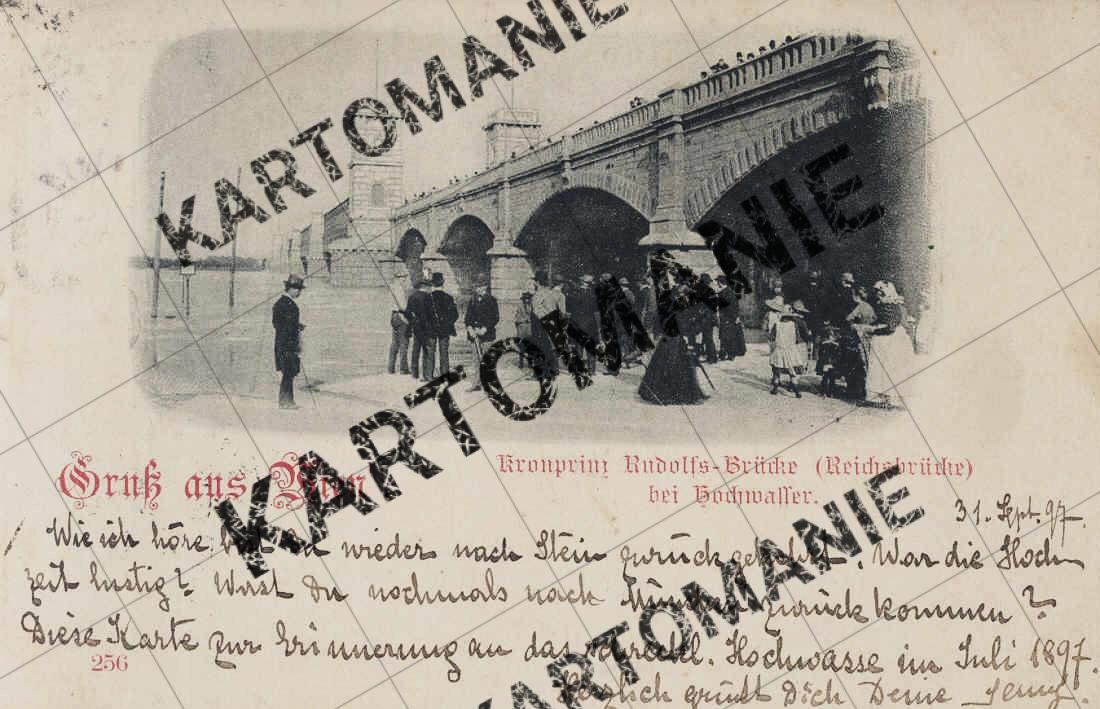 KARTOMANIE
KARTOMANIE
KARTOMANIE
Gruß aus Wien
Kronprinz Rudolfs-Brücke (Reichsbrücke)
bei Hochwasser.
31. Sept. 97.
Wie ich höre, bist Du wieder nach Stein zurückgekehrt. War die Hoch
zeit lustig? Wirst Du nochmals nach München zurück kommen?
Diese Karte zur Erinnerung an das schreckl. Hochwasse im Juli 1897.
256
Herzlich grüßt Dich Deine Jenny.